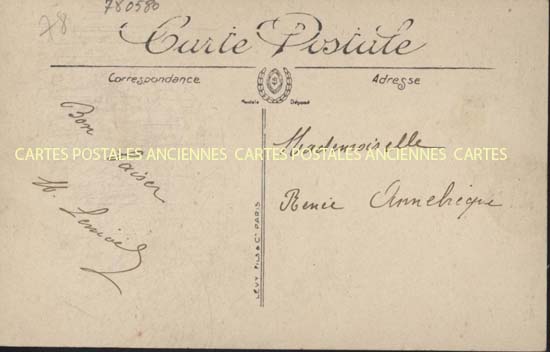 78
780580
Carte Postale
Correspondance
Adresse
Modèle Déposé
Bon
Baiser
Mademoiselle
CARTES POSTALES ANCIENNES CARTES POSTALES ANCIENNES CARTES
Renée
LEVY FILS & Cie PARIS